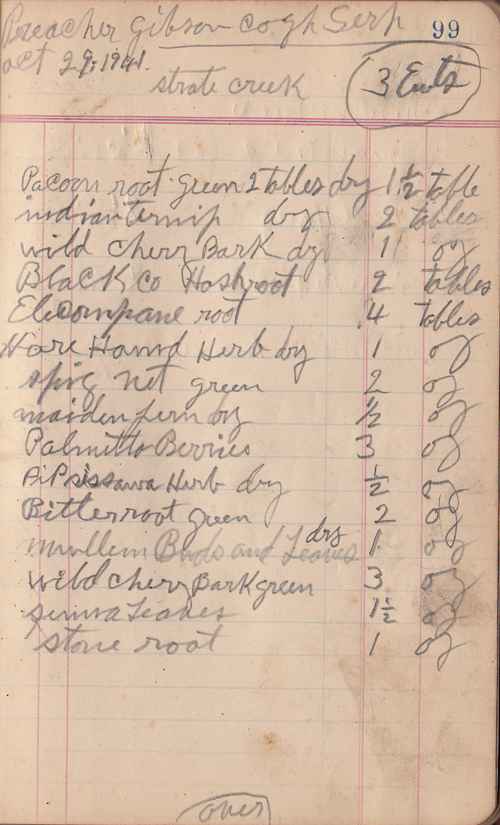 Preacher Gibson Cogh Serp 99
oct 29, 1941.
strate creek 3 Euts
Pacoon root green 2 tables dry 1 1/2 table
indian ternip dry 2 tables
wild cherr Bark dy 1 oz
Black co Hoshroot 2 tables
Elecompane root 4 tables
Hore Hound Herb dy 1 oz
spig net green 2 oz
maiden fern dy 1/2 oz
Palmitto Berries 3 oz
Pipsissawa Herb dry 1/2 oz
Bitterroot green 2 oz
Mullein Buds and Leaves dry 1 oz
wild cherr Bark green 3 oz
sinna Leaves 1 1/2 oz
stone root 1 oz
over